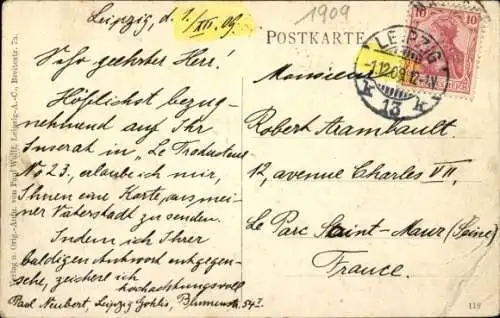 Leipzig, d. 1./XII. 09.
1909
POSTKARTE
10 10
LEIPZIG
-1.12.09.12-1N
* 13 k
Sehr geehrter Herr!
Höflichst bezug-
nehmend auf Ihr
Inserat in "Le Traducteur"
No 23., erlaube ich mir,
Ihnen eine Karte aus mei-
ner Vaterstadt zu senden.
Indem ich Ihrer
baldigen Antwort entgegen-
sehe, zeichne ich
hochachtungsvoll
Paul Neubert, Leipzig Gohlis, Blumenstr. 54 I.
Monsieur
Robert Arambault.
12, avenue Charles VII,
Le Parc Saint-Maur (Seine)
France.
Verlag u. Orig.-Aufn. von Paul Wolff, Leipzig-A.-C., Breitestr. 7a.